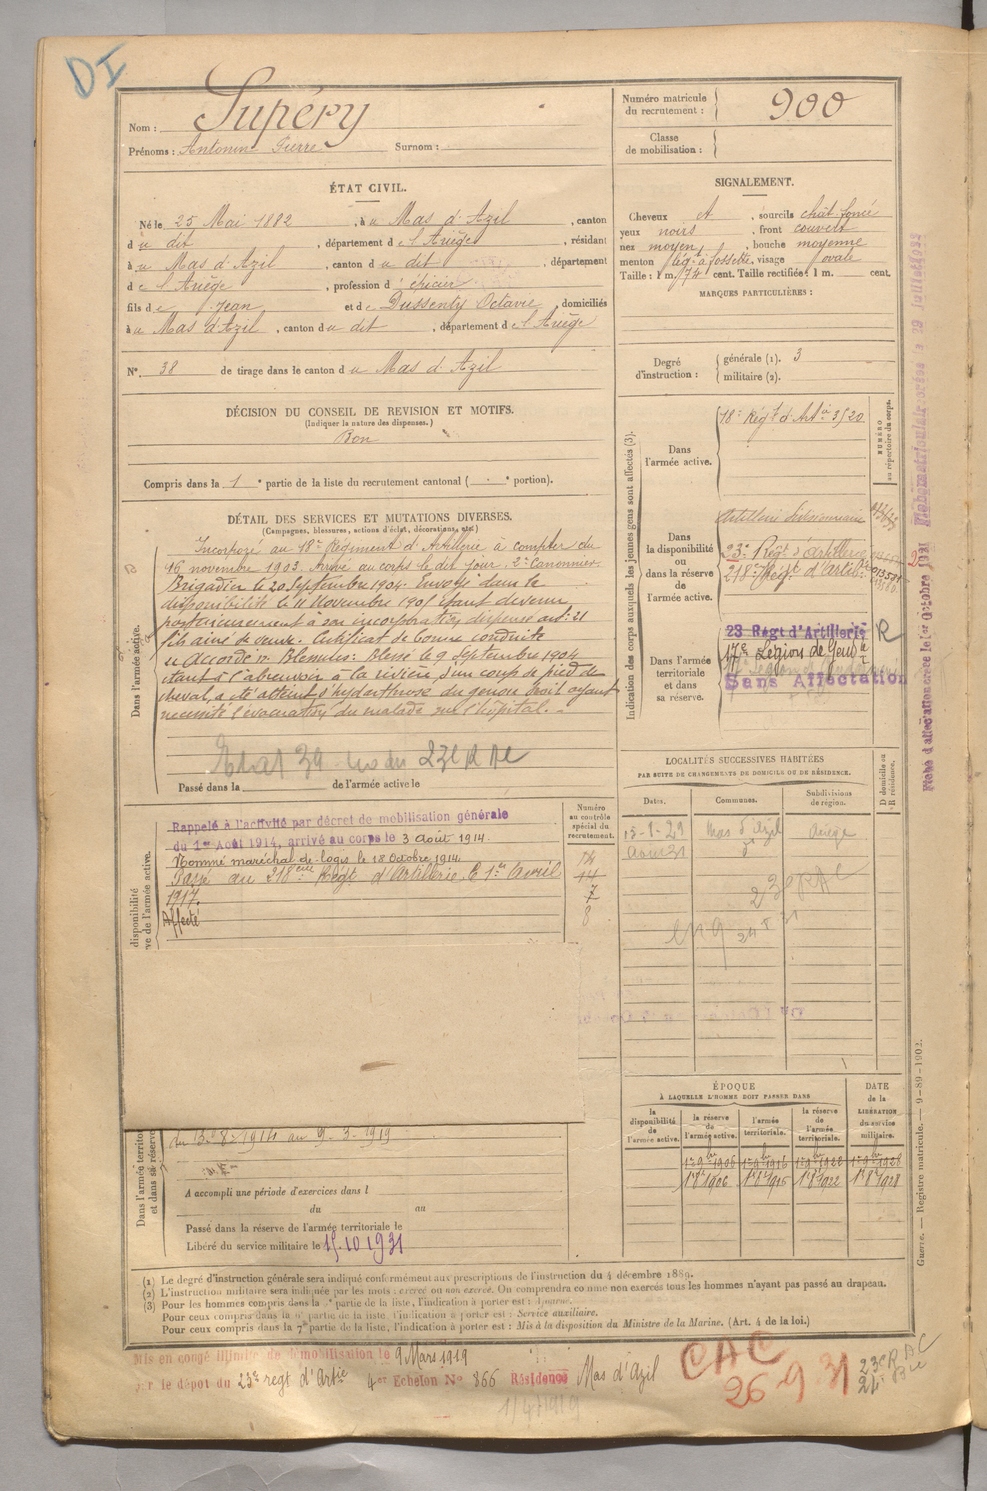 DI
Nom : Supéry
Prénoms : Antonin Pierre Surnom :
Numéro matricule du recrutement : 900
Classe de mobilisation :
ÉTAT CIVIL.
Né le 25 Mai 1882, à u Mas d'Azil, canton
d u dit, département d e l'Ariège, résidant
à u Mas d'Azil, canton d u dit, département
d e l'Ariège, profession d' épicier
fils d e Jean et d e Dussenty Octavie, domiciliés
à u Mas d'Azil, canton d u dit, département d e l'Ariège
N° 38 de tirage dans le canton d u Mas d'Azil
SIGNALEMENT.
Cheveux et, sourcils chât. foncé
yeux noirs, front couvert
nez moyen, bouche moyenne
menton lég. à fossette, visage ovale
Taille : 1 m. 74 cent. Taille rectifiée : 1 m. cent.
MARQUES PARTICULIÈRES :
Degré d'instruction : générale (1). 3
militaire (2).
DÉCISION DU CONSEIL DE REVISION ET MOTIFS.
(Indiquer la nature des dispenses.)
Bon
Compris dans la 1e partie de la liste du recrutement cantonal ( e portion).
DÉTAIL DES SERVICES ET MUTATIONS DIVERSES.
(Campagnes, blessures, actions d'éclat, décorations, etc.)
Dans l'armée active.
Incorporé au 18e Régiment d'Artillerie à compter du
16 novembre 1903. Arrivé au corps le dit jour. 2e Canonnier.
Brigadier le 20 Septembre 1904. Envoyé dans la
disponibilité le 11 Novembre 190 étant devenu
postérieurement à son incorporation dispensé art. 21
fils aîné de veuve. Certificat de bonne conduite
accordé. Blessures : Blessé le 9 Septembre 1904
étant à l'abreuvoir à la rivière d'un coup de pied de
cheval, a été atteint d'hydarthrose du genou droit ayant
nécessité l'évacuation du malade sur l'hôpital.
Passé dans la de l'armée active le
Indication des corps auxquels les jeunes gens sont affectés (3).
NUMÉRO au répertoire du corps.
Dans l'armée active.
18e Régt d'Artie 3/20
Dans la disponibilité ou dans la réserve de l'armée active.
Artillerie
23e Régt d'Artillerie
218e Régt d'Artill
Dans l'armée territoriale et dans sa réserve.
23 Régt d'Artillerie R
17e Légion de Gend
Sans Affectation
LOCALITÉS SUCCESSIVES HABITÉES
PAR SUITE DE CHANGEMENTS DE DOMICILE OU DE RÉSIDENCE.
Dates. Communes. Subdivisions de région. D domicile ou R résidence.
13-1-29 Mas d'Azil Ariège
Aout 31 d°
disponibilité
ve de l'armée active
Numéro au contrôle spécial du recrutement.
Rappelé à l'activité par décret de mobilisation générale
du 1er Août 1914, arrivé au corps le 3 Août 1914.
Nommé maréchal-de-logis le 18 Octobre 1914.
Passé au 218ème Régt d'Artillerie, le 1er Avril
1917.
Affecté
14
7
8
Dans l'armée territo
et dans sa réserve
du 13-8-1914 au 9-3-1919
A accompli une période d'exercices dans l
du au
Passé dans la réserve de l'armée territoriale le
Libéré du service militaire le 15.10 1931
ÉPOQUE
À LAQUELLE L'HOMME DOIT PASSER DANS
la disponibilité de l'armée active.
la réserve de l'armée active.
l'armée territoriale.
la réserve de l'armée territoriale.
DATE de la LIBÉRATION du service militaire.
1er 9bre 1906 1er 9bre 1916 1er 9bre 1922 1er 9bre 1928
(1) Le degré d'instruction générale sera indiqué conformément aux prescriptions de l'instruction du 4 décembre 1889.
(2) L'instruction militaire sera indiquée par les mots : exercé ou non exercé. On comprendra comme non exercés tous les hommes n'ayant pas passé au drapeau.
(3) Pour les hommes compris dans la partie de la liste, l'indication à porter est : Ajourné.
Pour ceux compris dans la partie de la liste, l'indication à porter est : Service auxiliaire.
Pour ceux compris dans la 7e partie de la liste, l'indication à porter est : Mis à la disposition du Ministre de la Marine. (Art. 4 de la loi.)
Mis en congé illimité de démobilisation le 9 Mars 1919
par le dépot du 23e régt d'Artie 4er Echelon N° 866 Résidence Mas d'Azil
CAC
26 9 31
23e RAC
1/4/1919
Guerre. — Registre matricule. — 9-89-1902.